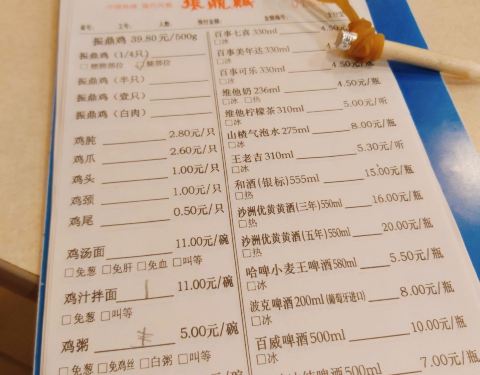 振鼎鸡
振鼎鸡 39.80元/500g
振鼎鸡(1/4只)
振鼎鸡(半只)
振鼎鸡(壹只)
振鼎鸡(白肉)
鸡肫 2.80元/只
鸡爪 2.60元/只
鸡头 1.00元/只
鸡颈 1.00元/只
鸡尾 0.50元/只
鸡汤面 11.00元/碗
□免葱 □免肝 □免血 □叫等
鸡汁拌面 11.00元/碗
□免葱 □叫等
鸡粥 5.00元/碗
□免葱 □免鸡丝 □白粥 □叫等
百事七喜330ml 4.50元/
□冰
百事美年达330ml 4.50
□冰
百事可乐330ml
□冰
维他奶236ml 4.50元/瓶
□冰 □热
维他柠檬茶310ml 5.00元/听
□冰
山楂气泡水275ml 8.00元/瓶
□冰
王老吉310ml 5.30元/听
□冰
和酒(银标)555ml 15.00元/瓶
□热
沙洲优黄黄酒(三年)550ml 16.00元/瓶
□热
沙洲优黄黄酒(五年)550ml 20.00元/瓶
□热
哈啤小麦王啤酒580ml 5.50元/瓶
□冰
波克啤酒200ml(葡萄牙进口) 8.00元/瓶
□冰
百威啤酒500ml 10.00元/瓶
□冰
啤酒500ml 7.00元/瓶